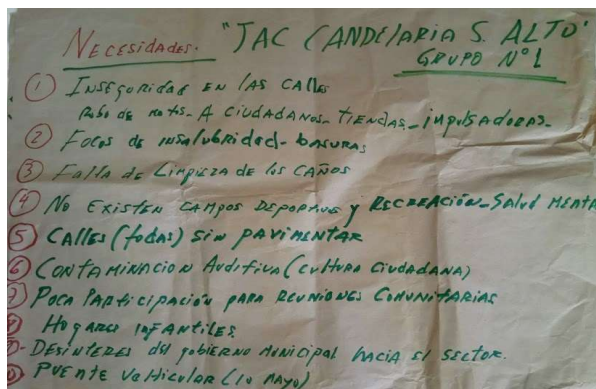 NECESIDADES. "JAC CANDELARIA S. ALTO"
GRUPO N° 1
① INSEGURIDAD EN LAS CALLES
Robo de motos - A CIUDADANOS - TIENDAS - impulsadoras -
② Focos de insalubridad - basuras
③ Falta de Limpieza de los CAÑOS
④ No EXISTEN CAMPOS DEPORTIVOS y RECREACIÓN - Salud MENTA
⑤ CAlles (todas) Sin PAVIMENTAR
⑥ CONTAMINACION Auditiva (cultura CIUDADANA)
7 POCA PARTICIPACIÓN PARA REUNIONES COMUNITARIAS
HOGARES INFANTILES
DESINTERES del gobierno MUNICIPAL hacia el sector.
PUENTE VeHicular (10 MAYO)